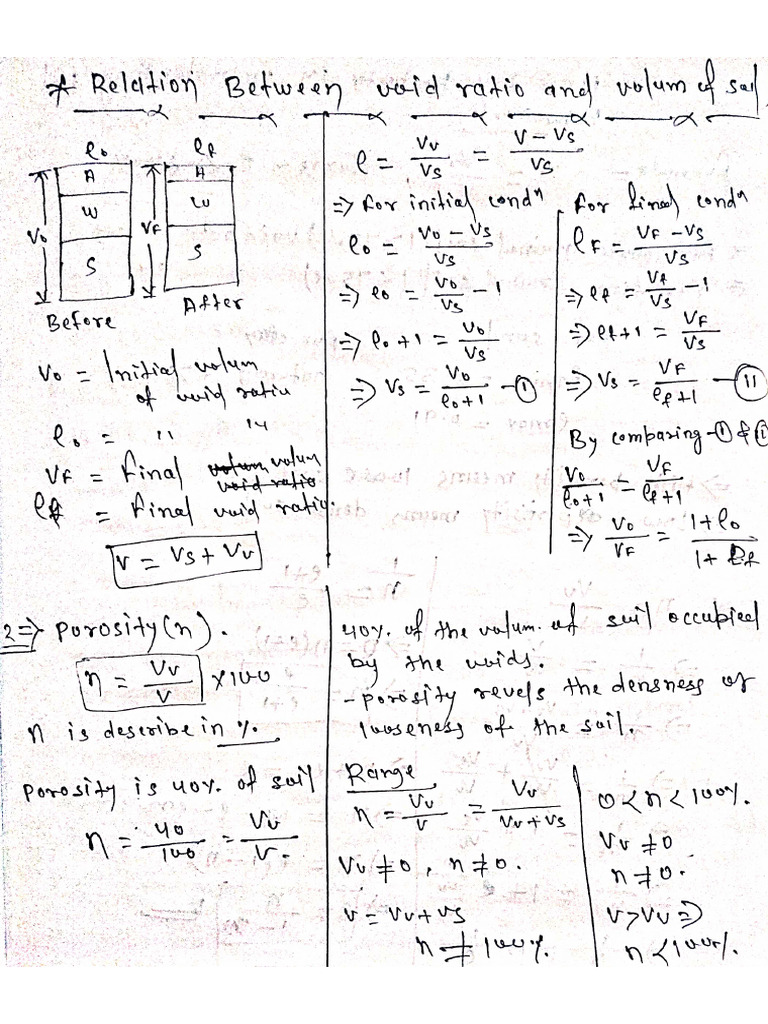 * Relation Between void ratio and volum of soil.
e₀ ef
A A
W W
S S
V₀ VF
Before After
V₀ = Initial volum
of void ratio
e₀ = '' ''
VF = final volum
ef = final void ratio
V = Vs + Vv
e = Vv/Vs = V-Vs/Vs
⇒ for initial condⁿ
e₀ = V₀-Vs/Vs
⇒ e₀ = V₀/Vs - 1
⇒ e₀+1 = V₀/Vs
⇒ Vs = V₀/e₀+1 - ①
for final condⁿ
eF = VF-Vs/Vs
⇒ ef = Vf/Vs - 1
⇒ ef+1 = VF/Vs
⇒ Vs = VF/ef+1 - ⑪
By comparing - ① & ⑪
V₀/e₀+1 = VF/ef+1
⇒ V₀/VF = 1+e₀/1+ef
2 ⇒ porosity (n).
n = Vv/V × 100
n is describe in %.
porosity is 40% of soil
n = 40/100 = Vv/V.
40% of the volum. of soil occupied
by the voids.
- porosity revels the densness or
looseness of the soil.
Range
n = Vv/V = Vv/Vv+Vs
Vv ≠ 0, n ≠ 0.
V = Vv+Vs
n ≠ 100%.
0 < n < 100%.
Vv ≠ 0
n ≠ 0.
V > Vv ⇒
n < 100%.